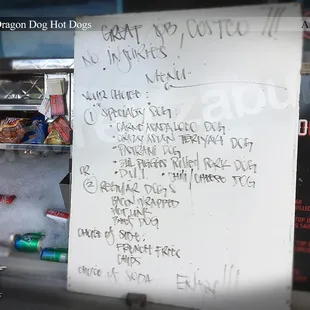 Dragon Dog Hot Dogs
GREAT JOB, COSTCO !!!
NO INJURIES
MENU
YOUR CHOICE:
① SPECIALTY DOG
• CARNE ASADA LOCO DOG
• CRAZY ASIAN TERIYAKI DOG
• PASTRAMI DOG
PULLED PORK DOG
OR
CHILI/CHEESE DOG
② REGULAR DOGS
BACON WRAPPED
HOT LINK
DOG
CHOICE OF SIDE:
FRENCH FRIES
CHIPS
CHOICE OF SODA
ENJOY!!!